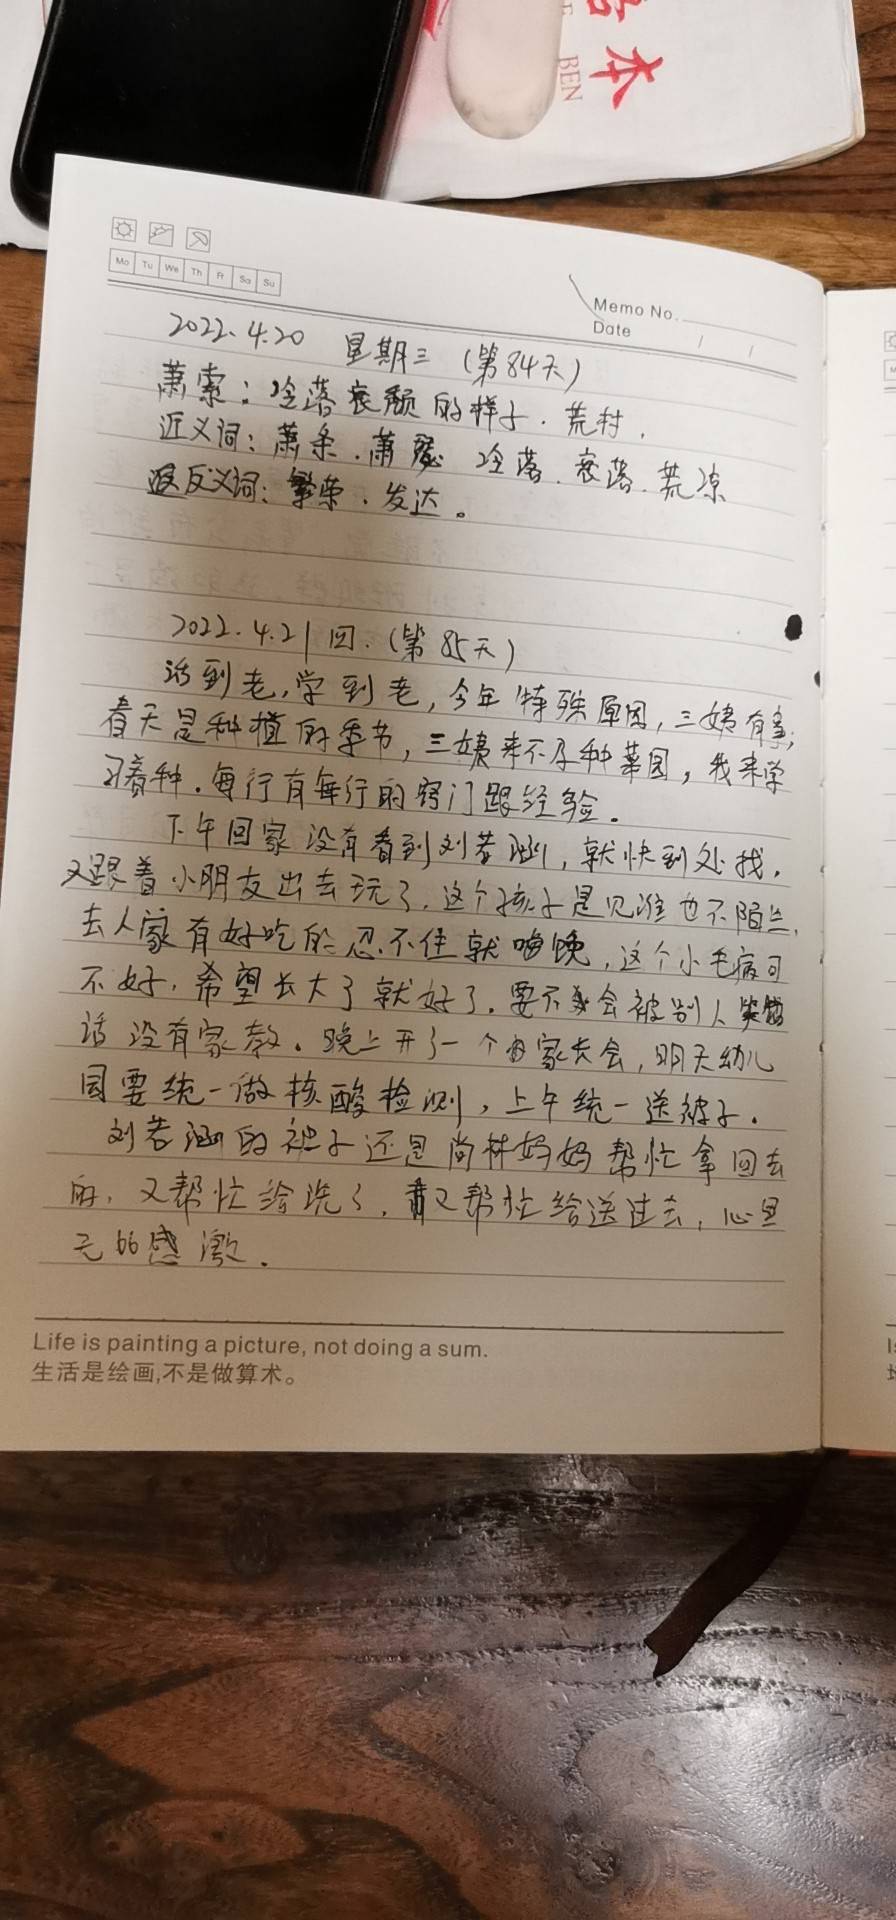 本
BEN
Mo Tu We Th Fr Sa Su
Memo No.
Date / /
2022.4.20 星期三 (第84天)
萧索：冷落衰颓的样子．荒村．
近义词：萧条．萧瑟 冷落．衰落．荒凉
反义词：繁荣．发达。
2022.4.21 四.(第85天)
活到老,学到老,今年特殊原因,三姨有事,
春天是种植的季节,三姨来不及种菜园,我来学
习着种.每行有每行的窍门跟经验。
下午回家没有看到刘若涵,就快到处找.
又跟着小朋友出去玩了.这个孩子是见谁也不陌生.
去人家有好吃的忍不住就嘴馋,这个小毛病可
不好,希望长大了就好了.要不会被别人笑
话没有家教。晚上开了一个家长会,明天幼儿
园要统一做核酸检测,上午统一送被子.
刘若涵的被子还是尚林妈妈帮忙拿回去
的,又帮忙给洗了,又帮忙给送过去,心里
无比感激.
Life is painting a picture, not doing a sum.
生活是绘画,不是做算术。